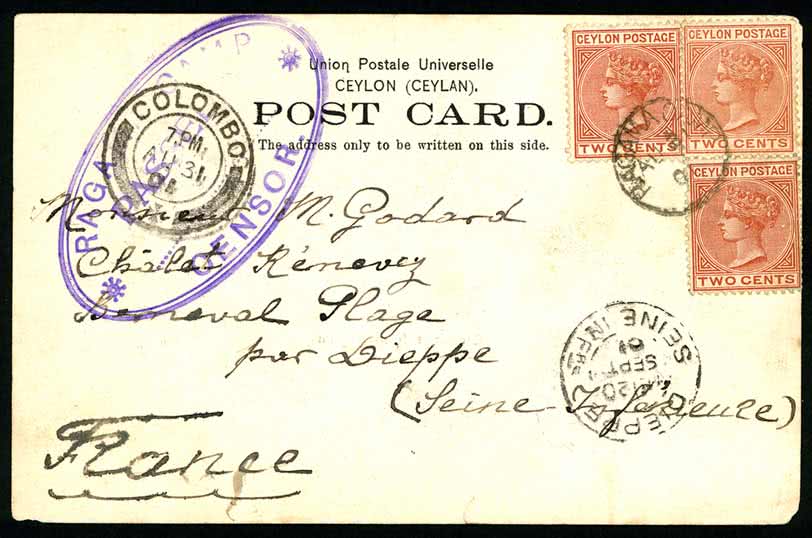 CEYLON POSTAGE
TWO CENTS
CEYLON POSTAGE
TWO CENTS
CEYLON POSTAGE
TWO CENTS
Union Postale Universelle
CEYLON (CEYLAN).
POST CARD.
The address only to be written on this side.
RAGAMA CAMP
PASSED
CENSOR.
COLOMBO
7 PM
31
Monsieur M. Godard
Châlet Rénevey
Berneval Plage
par Dieppe
(Seine-Inférieure)
France
DIEPPE
SEINE INFRE
SEPT
01